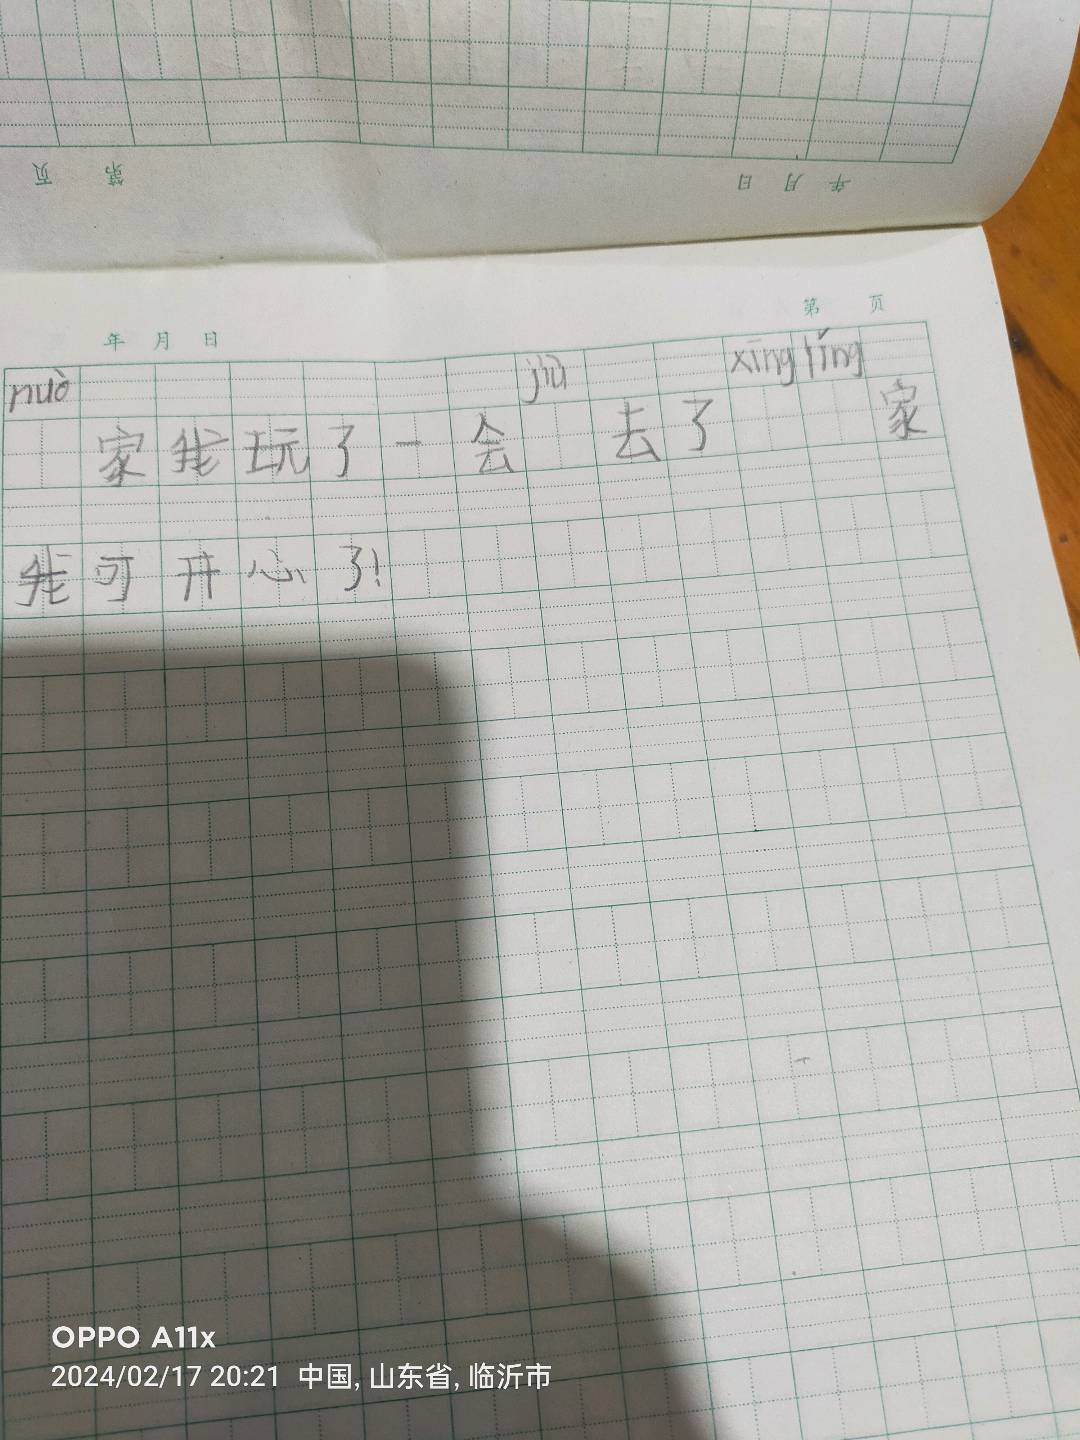 页 第 日 月 年
第 页
年 月 日
nuò jiù xīng tíng
家我玩了一会 去了 家
我可开心了!
OPPO A11x
2024/02/17 20:21 中国, 山东省, 临沂市